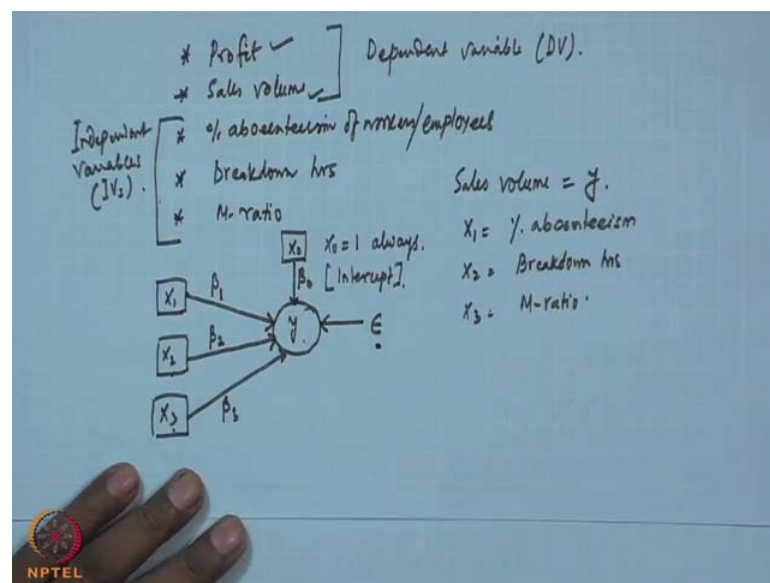 * Profit ✓
* Sales volume ✓
Dependent variable (DV).
Independent variables (IVs).
* % absenteeism of workers/employees
* Breakdown hrs
* M-ratio
Sales volume = y.
X₁ = % absenteeism
X₂ = Breakdown hrs
X₃ = M-ratio.
X₀ X₀ = 1 always.
β₀ [Intercept].
X₁ β₁
X₂ β₂
y ε
X₃ β₃
NPTEL